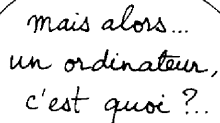 mais alors...
un ordinateur,
c'est quoi ?..